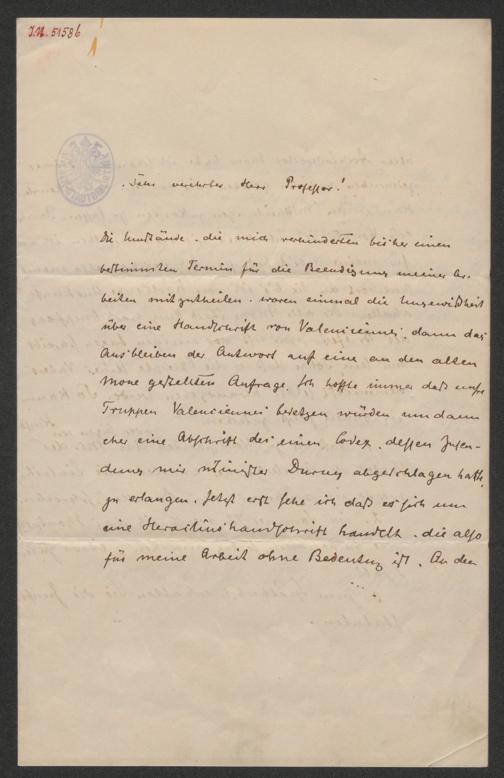 I.N. 51586
Sehr verehrter Herr Professor!
Die Umstände, die mich verhinderten bisher einen
bestimmten Termin für die Beendigung meiner Ar-
beiten mitzutheilen, waren einmal die Ungewißheit
über eine Handschrift von Valenciennes, dann das
Ausbleiben der Antwort auf eine an den alten
Mone gestellten Anfrage. Ich hoffte immer daß unsre
Truppen Valenciennes besetzen würden um dann
eher eine Abschrift des einen Codex, dessen Zusen-
dung mir Minister Duruy abgeschlagen hatte,
zu erlangen. Jetzt erst sehe ich daß es sich um
eine Heraclius handschrift handelt, die also
für meine Arbeit ohne Bedeutung ist. An den